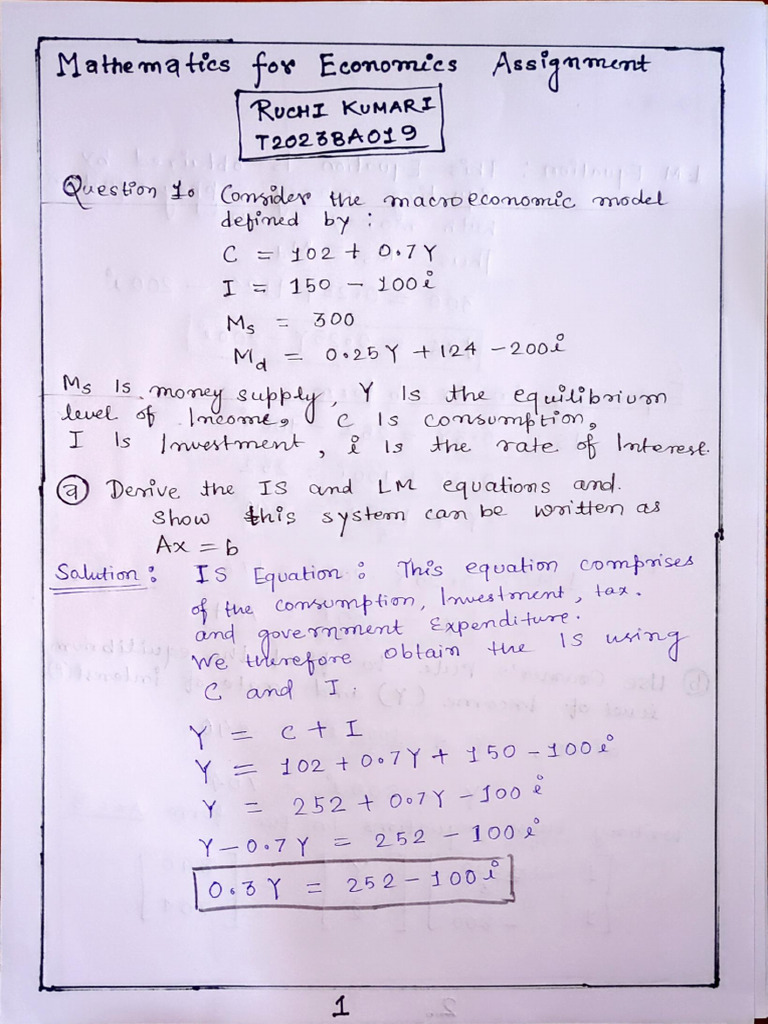 Mathematics for Economics Assignment
RUCHI KUMARI
T2023BA019
Question 1. Consider the macroeconomic model
defined by :
C = 102 + 0.7Y
I = 150 - 100i
Ms = 300
Md = 0.25Y + 124 - 200i
Ms Is money supply, Y Is the equilibrium
level of Income, C Is consumption,
I Is Investment, i Is the rate of Interest.
(a) Derive the IS and LM equations and.
show this system can be written as
Ax = b
Solution : IS Equation : This equation comprises
of the consumption, Investment, tax.
and government Expenditure.
We therefore obtain the IS using
C and I.
Y = C + I
Y = 102 + 0.7Y + 150 - 100i
Y = 252 + 0.7Y - 100i
Y - 0.7Y = 252 - 100i
0.3Y = 252 - 100i
1